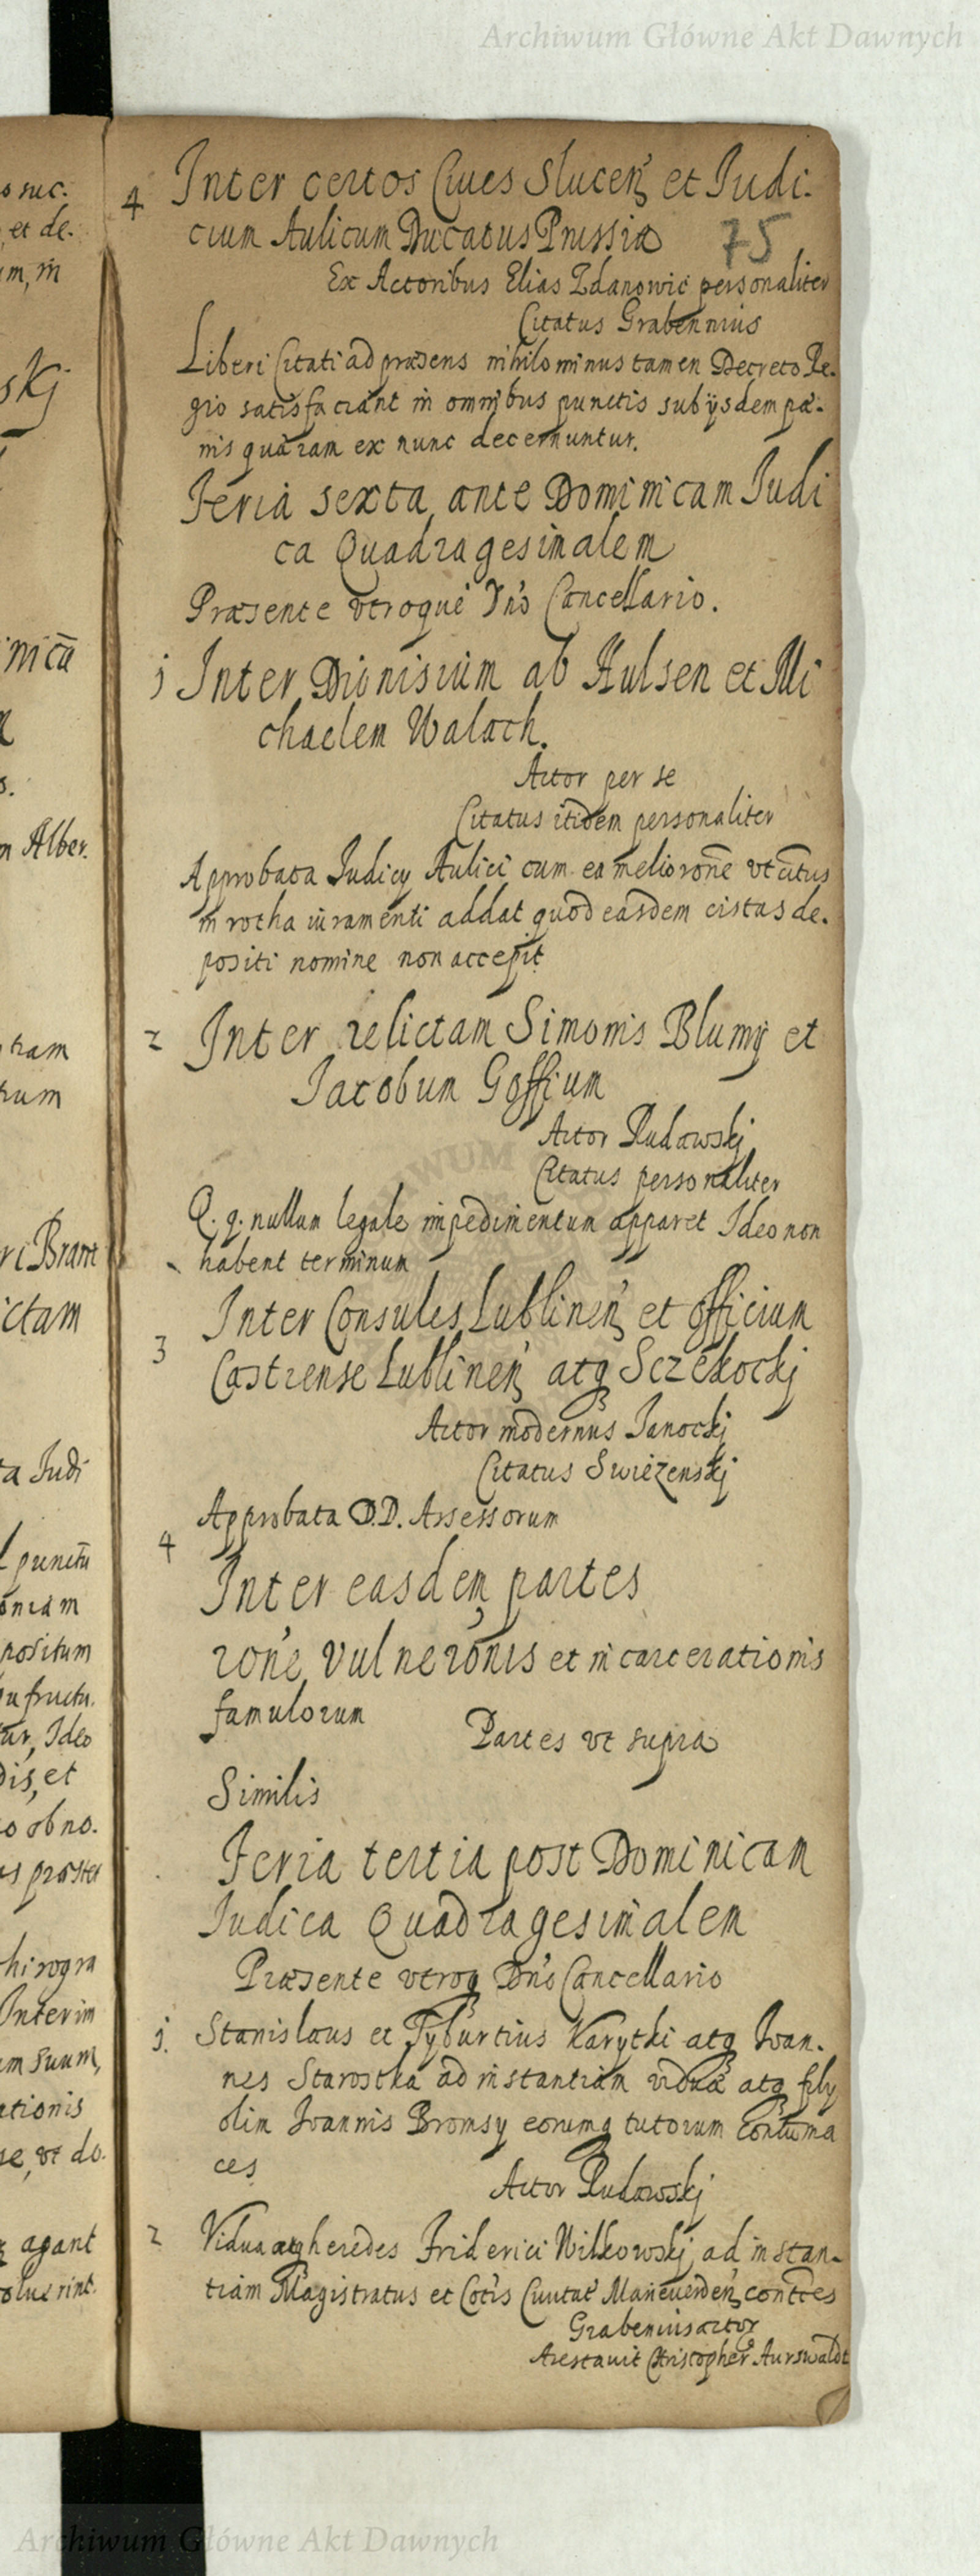 Archiwum Główne Akt Dawnych
75
4 Inter certos Ciues Slucen̄ et Judi-
cium Aulicum Ducatus Prussiæ
Ex Actoribus Elias Zdanowic personaliter
Citatus Grabennius
Liberi Citati ad præsens nihilominus tamen Decreto Re-
gio satisfaciant in omnibus punctis sub ijsdem pæ-
nis quàram ex nunc decernuntur.
Feria sexta ante Dominicam Judi
ca Quadragesimalem
Præsente vtroque Dn̄o Cancellario.
j Inter Dionisium ab Hulsen et Mi
chaelem Walach.
Actor per se
Citatus itidem personaliter
Approbata Judicij Aulici cum ea meliorōne vt citūs
in rotha iuramenti addat quod easdem cistas de-
positi nomine non accepit
2 Inter relictam Simonis Blumij et
Jacobum Goffium
Actor Rudawskj
Citatus personaliter
Q. q. nullum legale impedimentum apparet Ideo non
habent terminum
3 Inter Consules Lublinen̄ et officium
Castrense Lublinen̄ atq Sczekockj
Actor modernus Janockj
Citatus Swiezenskj
Approbata D.D. Assessorum
4
Inter easdem partes
rōne vulnerōnis et incarcerationis
famulorum
Partes vt supra
Similis
Feria tertia post Dominicam
Judica Quadragesimalem
Præsente vtroq Dn̄o Cancellario
j. Stanislaus et Tyburtius Karytki atq Ioan-
nes Starostka ad instantiam viduæ atq filij
olim Ioannis Bromsy eorumq tutorum contuma
ces
Actor Rudawskj
2 Vidua atq heredes Friderici Wilkowskj ad instan-
tiam Magistratus et Cōtis Ciuitat̄ Marieuerden̄ contces
Grabenius actor
Arestauit Christopher Aurswaldt
Archiwum Główne Akt Dawnych